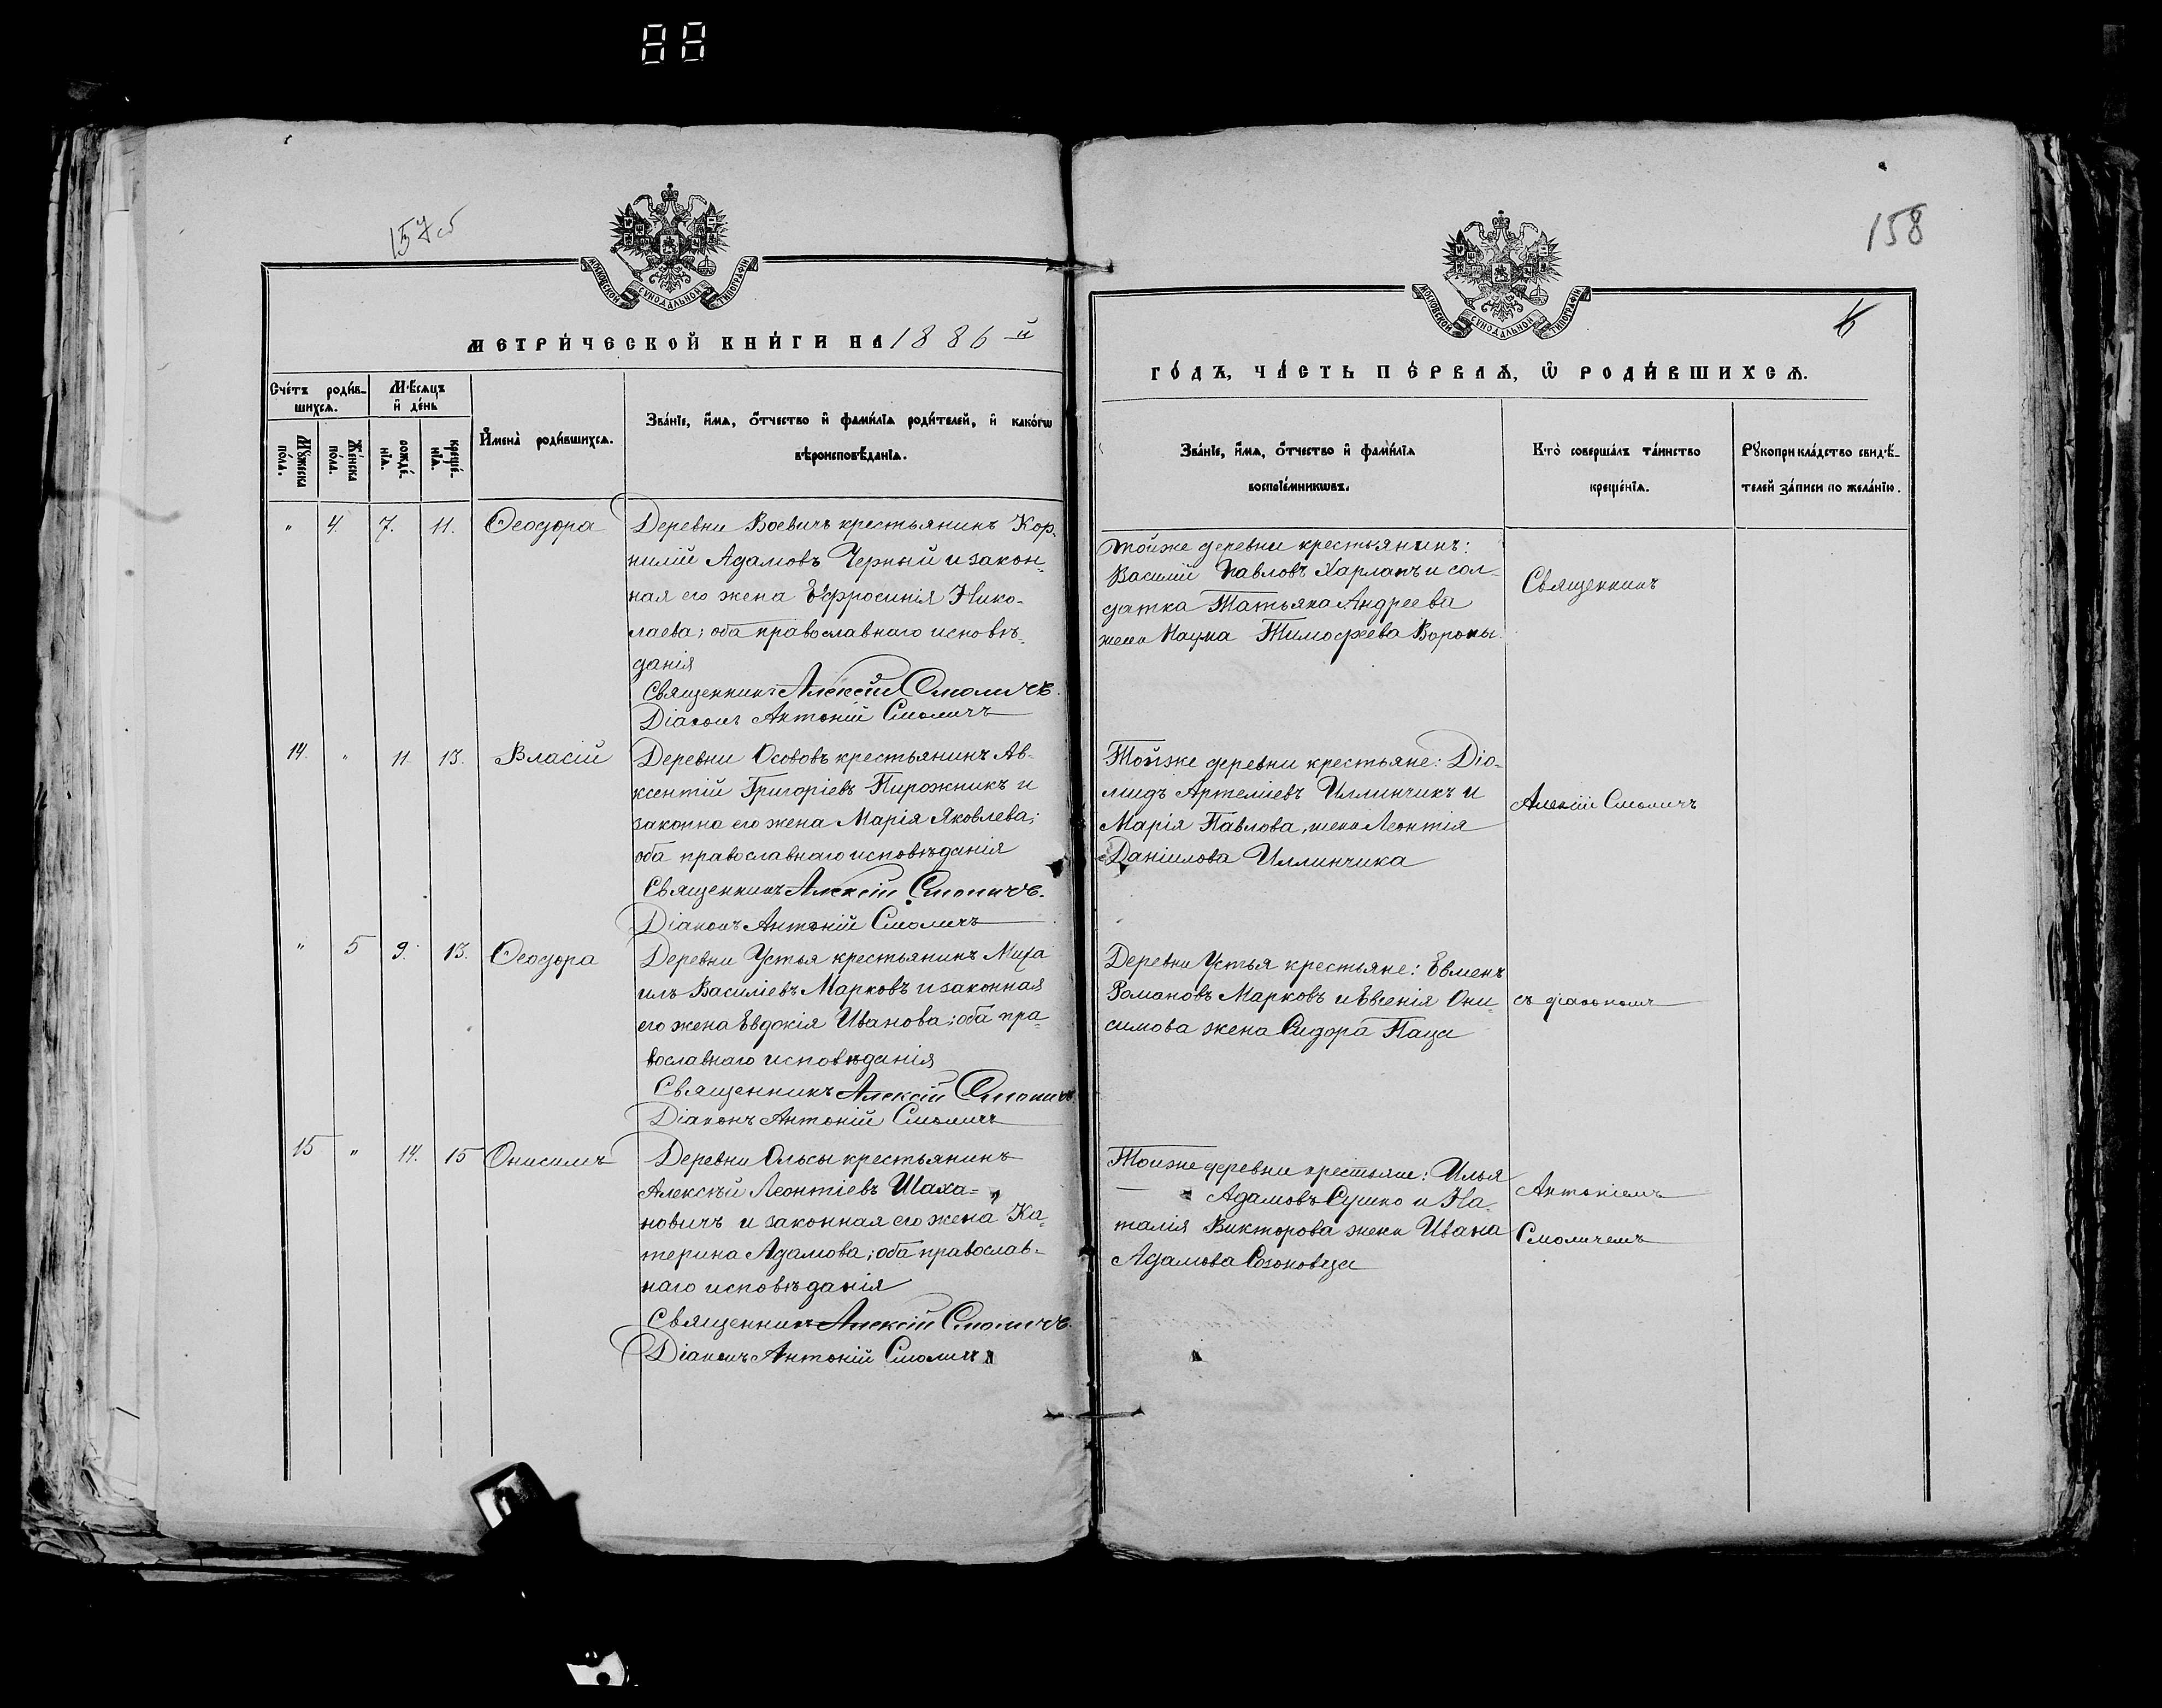 88
157об
МОСКОВСКОЙ СУНОДАЛЬНОЙ ТИПОГРАФІИ
МЕТРИ́ЧЕСКОЙ КНИ́ГИ НА 1886-й
Сче́тъ роди́в-
шихся.
Мѣ́сяцъ
и҆ де́нь
Мꙋ́жеска
по́ла.
Же́нска
по́ла.
рожде́-
нїѧ.
креще́-
нїѧ.
И҆мена̀ роди́вшихсѧ.
Зва́нїе, и҆́мѧ, ѻ҆́тчество и҆ фами́лїѧ роди́телей, и҆ како́гѡ
вѣроисповѣ́данїѧ.
" 4 7. 11. Ѳеодора
Деревни Воевичъ крестьянинъ Кор-
нилій Адамовъ Черный и закон-
ная его жена Евфросинія Нико-
лаева; оба православнаго исповѣ-
данія
Священникъ Алексій Смоличъ.
Діаконъ Антоній Смоличъ
14. " 11 13. Власій
Деревни Осововъ крестьянинъ Ав-
ксентій Григоріевъ Пирожникъ и
законна его жена Марія Яковлева;
оба православнаго исповѣданія
Священникъ Алексій Смоличъ.
Діаконъ Антоній Смоличъ
" 5 9. 13. Ѳеодора
Деревни Устья крестьянинъ Миха
илъ Василіевъ Марковъ и законная
его жена Евдокія Иванова; оба пра-
вославнаго исповѣданія
Священникъ Алексій Смоличъ
Діаконъ Антоній Смоличъ
15 " 14. 15 Онисимъ
Деревни Ольсы крестьянинъ
Алексѣй Леонтіевъ Шаха-
новичъ и законная его жена Ка-
терина Адамова; оба православ-
наго исповѣданія
Священникъ Алексій Смоличъ.
Діаконъ Антоній Смоличъ
158
МОСКОВСКОЙ СУНОДАЛЬНОЙ ТИПОГРАФІИ
ГО́ДЪ, ЧА́СТЬ ПЕ́РВАѦ, Ѡ҆ РОДИ́ВШИХСѦ.
Зва́нїе, и҆́мѧ, ѻ҆́тчество и҆ фами́лїѧ
воспрїе́мникѡвъ.
Кто̀ соверша́лъ та́инство
креще́нїѧ.
Рꙋкоприкла́дство свидѣ́-
телей за́писи по жела́нїю.
Тойже деревни крестьянинъ:
Василій Павловъ Харлапъ и сол-
датка Татьяна Андреева
жена Наума Тимофеева Вороны.
Священникъ
Тойже деревни крестьяне: Діо-
мидъ Артеміевъ Иллинчикъ и
Марія Павлова, жена Леонтія
Даніилова Иллинчика
Алексій Смоличъ
Деревни Устья крестьяне: Евменъ
Романовъ Марковъ и Евгенія Они-
симова жена Сидора Паца
съ діакономъ
Тойже деревни крестьяне: Илья
Адамовъ Сушко и На-
талія Викторова жена Ивана
Адамова Созоновца
Антоніемъ
Смоличемъ